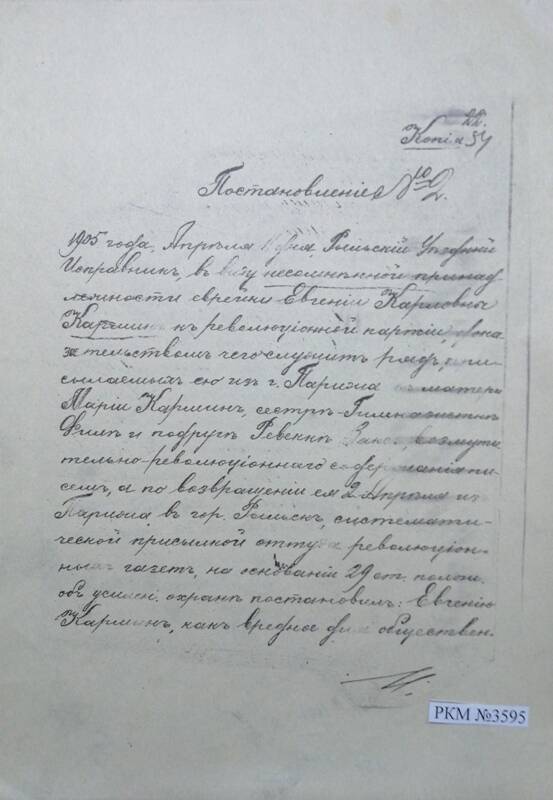 22.
Копія 54
Постановленіе № 2.
1905 года, Апрѣля дня, Рыльскій Уѣздный
Исправникъ, въ виду несомнѣнной принад
лежности еврейки Евгеніи Карловны
Карминъ къ революціонной партіи, дока
за тельствомъ чего служитъ рядъ, при
сылаемыхъ ею изъ г. Парижа матери
Маріи Карминъ, сестрѣ-Гимназисткѣ
и подругѣ Ревеккѣ Закъ, возмути
тельно-революціоннаго содержанія пи
семъ, а по возвращеніи ея 2 Апрѣля изъ
Парижа въ гор. Рыльскъ, системати-
ческой присылкой оттуда революціон-
ныхъ газетъ, на основаніи 29 ст. полож.
объ усилен. охранѣ постановилъ: Евгенію
Карминъ, какъ вредную для обществен.
РКМ №3595